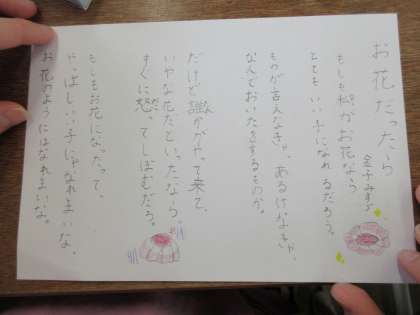 お花だったら
金子みすゞ
もしも私がお花なら
とてもいい子になれるだろう。
ものが言えなきゃ、あるけなきゃ、
なんでおいたをするものか。
だけど誰かがやって来て、
いやな花だといったなら、
すぐに怒ってしぼむだろう。
もしもお花になったって、
やっぱしいい子にゃなれまいな、
お花のようにはなれまいな。